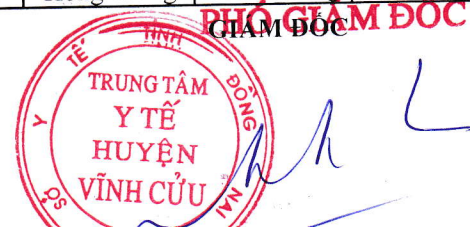 PHÓ GIÁM ĐỐC
GIÁM ĐỐC
SỞ Y TẾ TỈNH ĐỒNG NAI
TRUNG TÂM
Y TẾ
HUYỆN
VĨNH CỬU